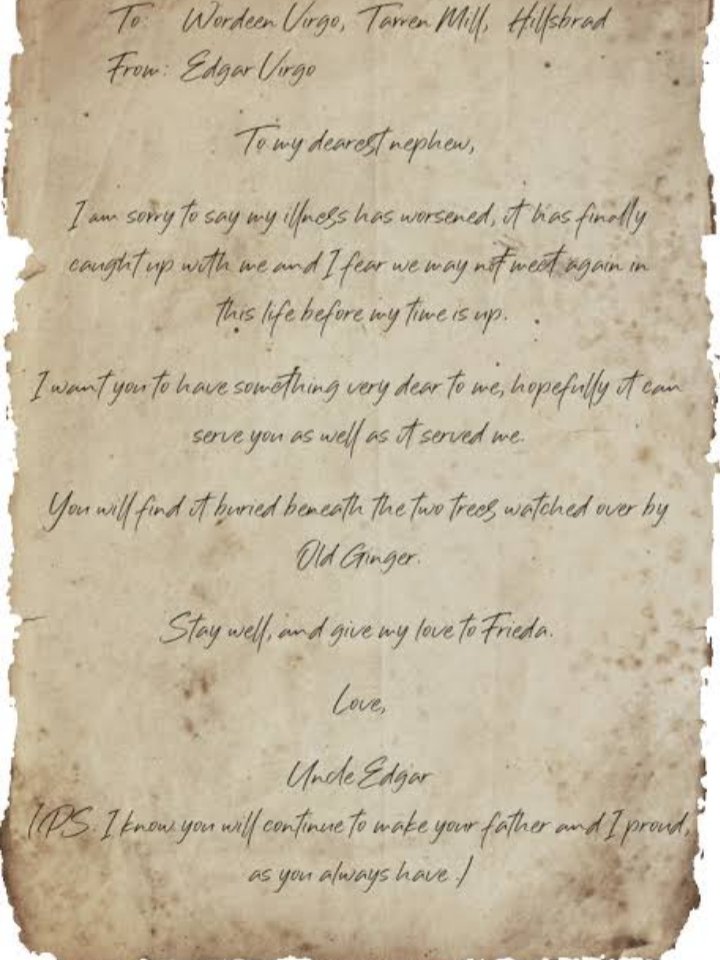 To: Wordeen Virgo, Tarren Mill, Hillsbrad
From: Edgar Virgo
To my dearest nephew,
I am sorry to say my illness has worsened, it has finally
caught up with me and I fear we may not meet again in
this life before my time is up.
I want you to have something very dear to me, hopefully it can
serve you as well as it served me.
You will find it buried beneath the two trees watched over by
Old Ginger.
Stay well, and give my love to Frieda.
Love,
Uncle Edgar
(PS. I know you will continue to make your father and I proud,
as you always have.)